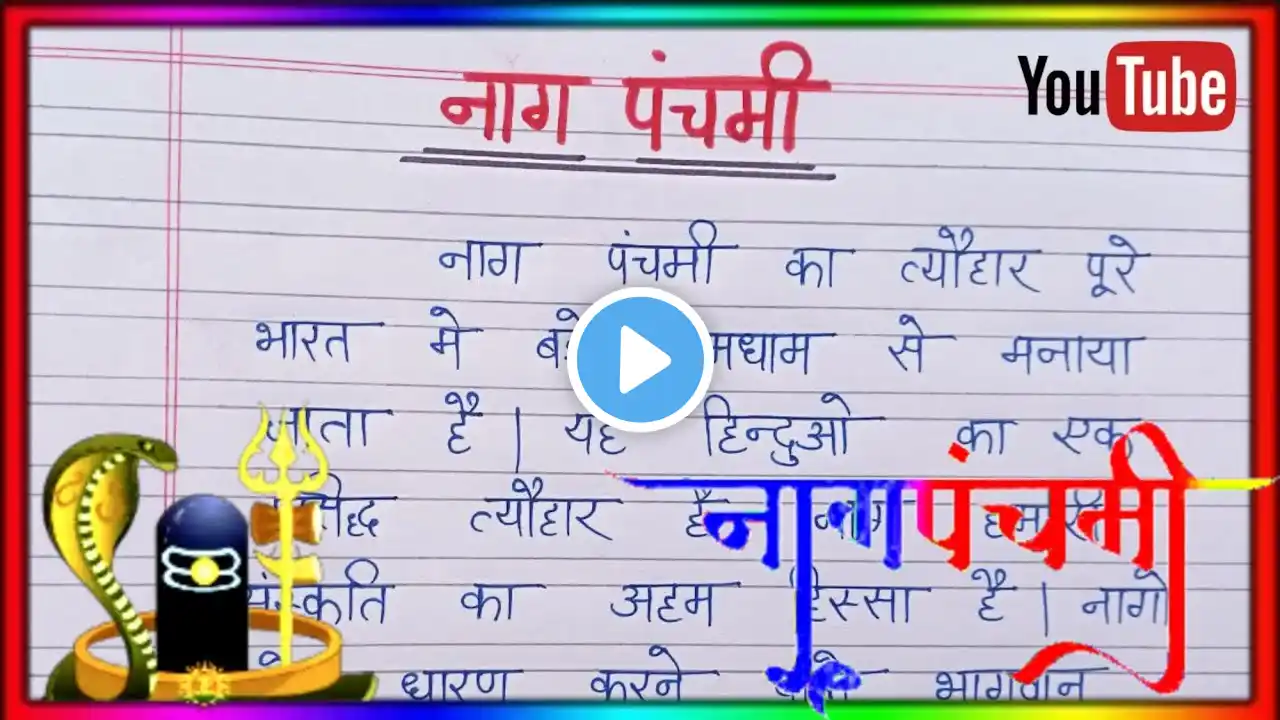 नाग पंचमी
YouTube
नाग पंचमी का त्यौहार पूरे
भारत मे से मनाया
है। यह हिन्दुओ का एक
त्यौहार है
का अहम हिस्सा है। नागो
धारण करने भागवान
नागपंचमी